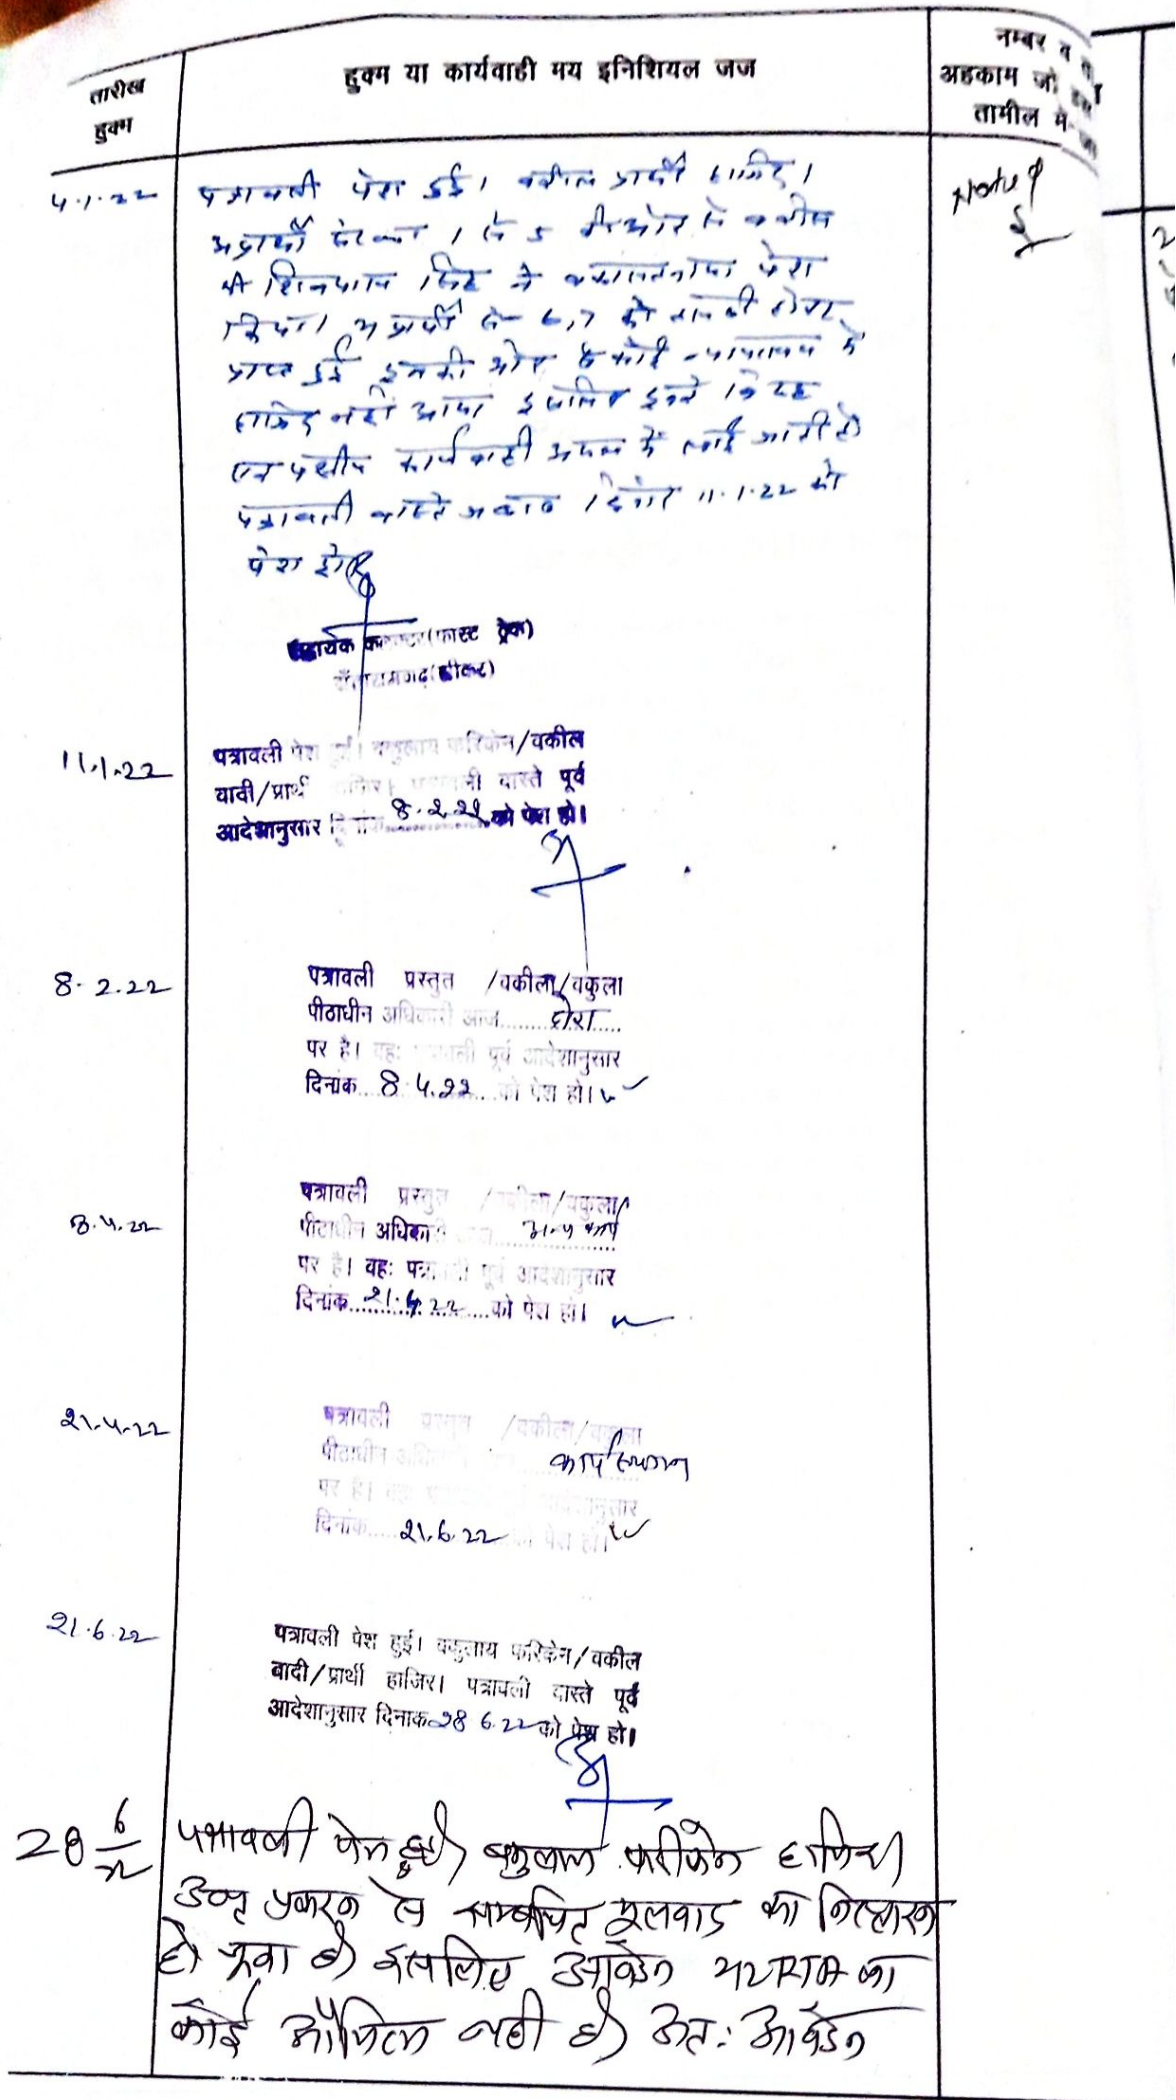 तारीख
हुक्म
हुक्म या कार्यवाही मय इनिशियल जज
नम्बर व
अहकाम जो इस
तामील में
4.1.22
पत्रावली पेश हुई। वकील प्रार्थी हाजिर।
अप्रार्थी संख्या 1 से 5 की ओर से वकील
श्री शिवपाल सिंह ने वकालतनामा पेश
किया। अप्रार्थी सं 6,7 की तामील होकर
प्राप्त हुई इनकी ओर से कोई न्यायालय में
हाजिर नहीं आया इसलिए इनके विरुद्ध
एक पक्षीय कार्यवाही अमल में लाई जाती है
पत्रावली वास्ते जवाब दिनांक 11.1.22 को
पेश हो
Noted
सहायक कलक्टर(फास्ट ट्रेक)
दाँतारामगढ़(सीकर)
11.1.22
पत्रावली पेश हुई। वकुलाय फरिकेन/वकील
वादी/प्रार्थी हाजिर। पत्रावली वास्ते पूर्व
आदेशानुसार दिनांक 8.2.22 को पेश हो।
8.2.22
पत्रावली प्रस्तुत /वकीला/वकुला
पीठाधीन अधिकारी आज......दौरा.....
पर है। वहः पत्रावली पूर्व आदेशानुसार
दिनांक 8.4.22 को पेश हो।
8.4.22
पत्रावली प्रस्तुत /वकीला/वकुला
पीठाधीन अधिकारी आज अन्य कार्य
पर है। वहः पत्रावली पूर्व आदेशानुसार
दिनांक 21.4.22 को पेश हो।
21.4.22
पत्रावली प्रस्तुत /वकीला/वकुला
पीठाधीन अधिकारी कार्य स्थगन
पर है। वहः पत्रावली पूर्व आदेशानुसार
दिनांक 21.6.22 को पेश हो।
21.6.22
पत्रावली पेश हुई। वकुलाय फरिकेन/वकील
वादी/प्रार्थी हाजिर। पत्रावली वास्ते पूर्व
आदेशानुसार दिनांक 28 6.22 को पेश हो।
28 6/22
पत्रावली पेश हुई। वकुलाय फरीकेन हाजिर।
उक्त प्रकरण से सम्बंधित मूलवाद का निस्तारण
हो चुका है। इसलिए आवेदन 212 RTA का
कोई औचित्य नहीं है। अतः आवेदन